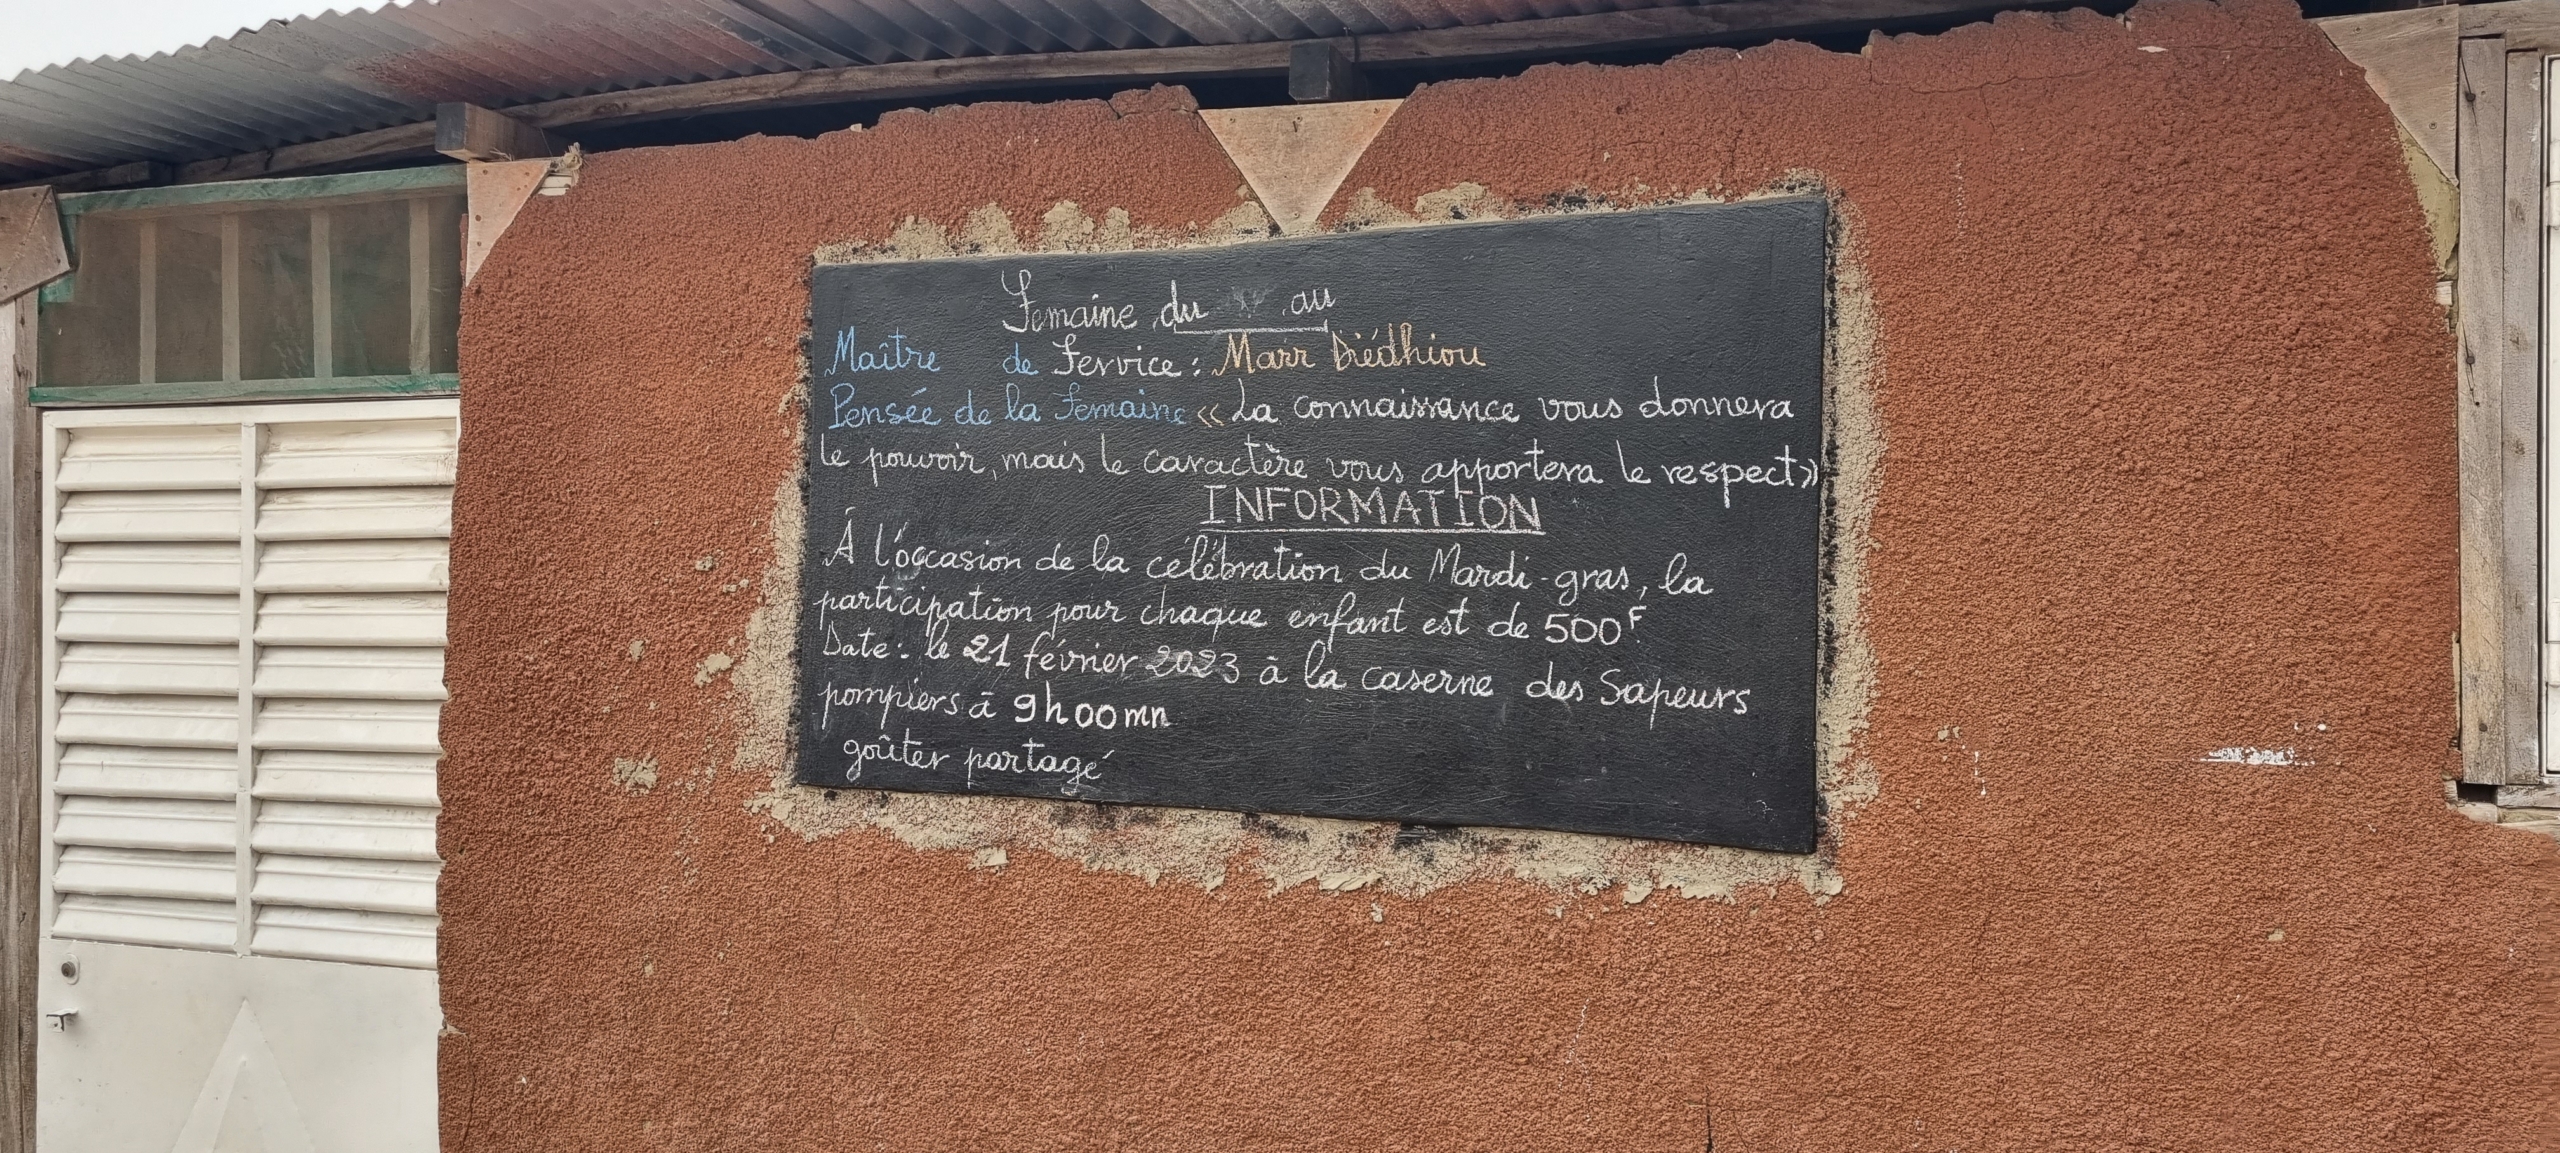 Semaine du au
Maître de Service : Marr Diédhiou
Pensée de la Semaine « La connaissance vous donnera
le pouvoir, mais le caractère vous apportera le respect »
INFORMATION
À l'occasion de la célébration du Mardi-gras, la
participation pour chaque enfant est de 500F
Date : le 21 février 2023 à la caserne des Sapeurs
pompiers à 9h00mn
goûter partagé